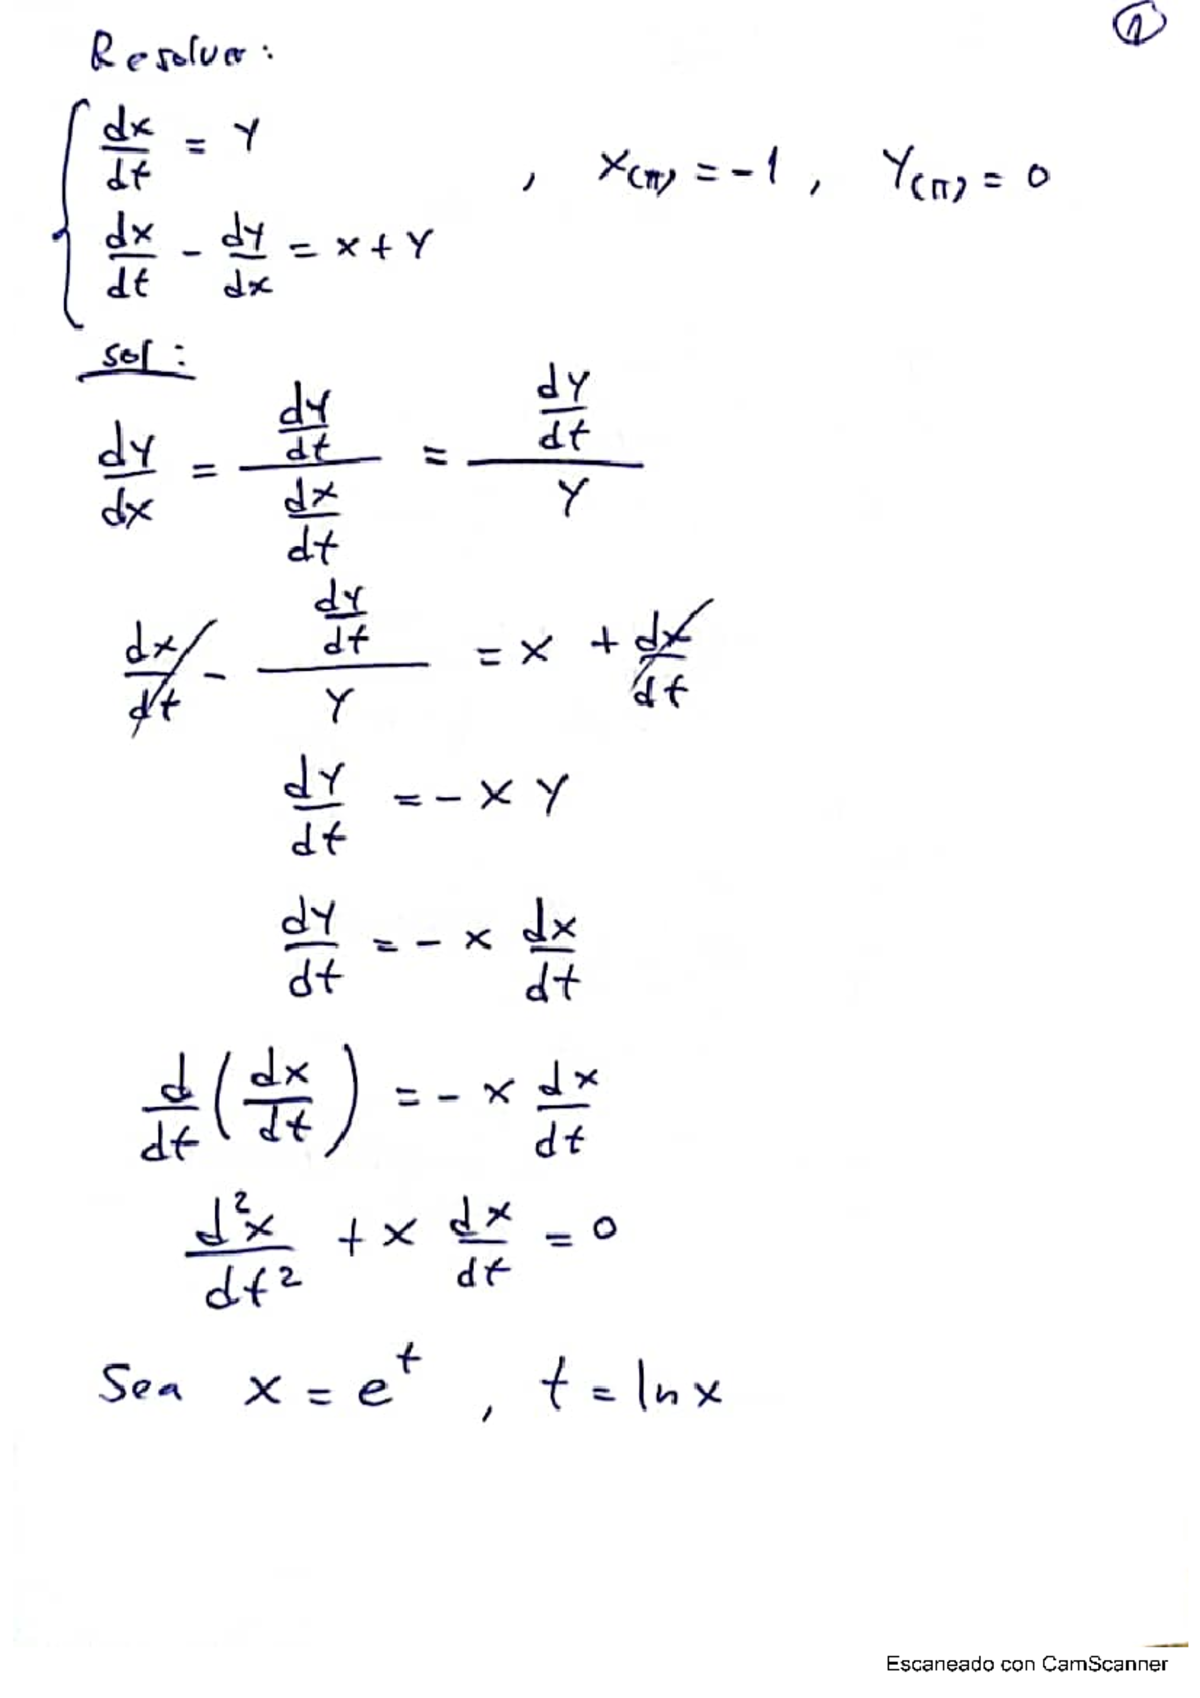 ①
Resolver:
dx/dt = Y , X(π) = -1, Y(π) = 0
dx/dt - dy/dx = x + Y
sol:
dY/dx = (dY/dt)/(dx/dt) = (dY/dt)/Y
dx/dt - (dY/dt)/Y = x + dx/dt
dY/dt = - x Y
dY/dt = - x dx/dt
d/dt (dx/dt) = - x dx/dt
d²x/dt² + x dx/dt = 0
Sea x = e^t , t = ln x
Escaneado con CamScanner